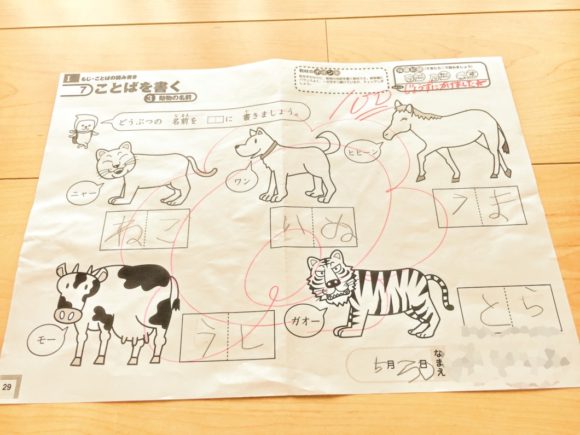 1 もじ・ことばの読み書き
7 ことばを書く
3 動物の名前
どうぶつの 名前を □□に 書きましょう。
100
ニャー
ワン
ヒヒーン
ねこ
いぬ
うま
モー
ガオー
うし
とら
5月30日
なまえ
29